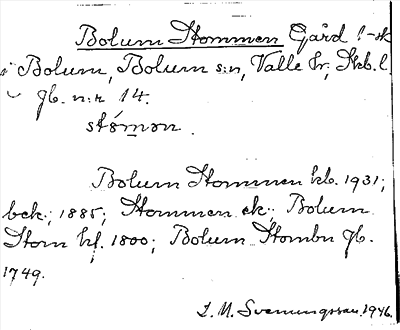 Bolum Stommen Gård
i Bolum, Bolum s:n, Valle hr, Skb. l.
jb. n:r 14.
stómən.
Bolum Stommen kb. 1931;
bek.; 1885; Stommen ek; Bolum
Stom kf. 1800; Bolum Stombn jb.
1749.
I. M. Svenungsson. 1946.